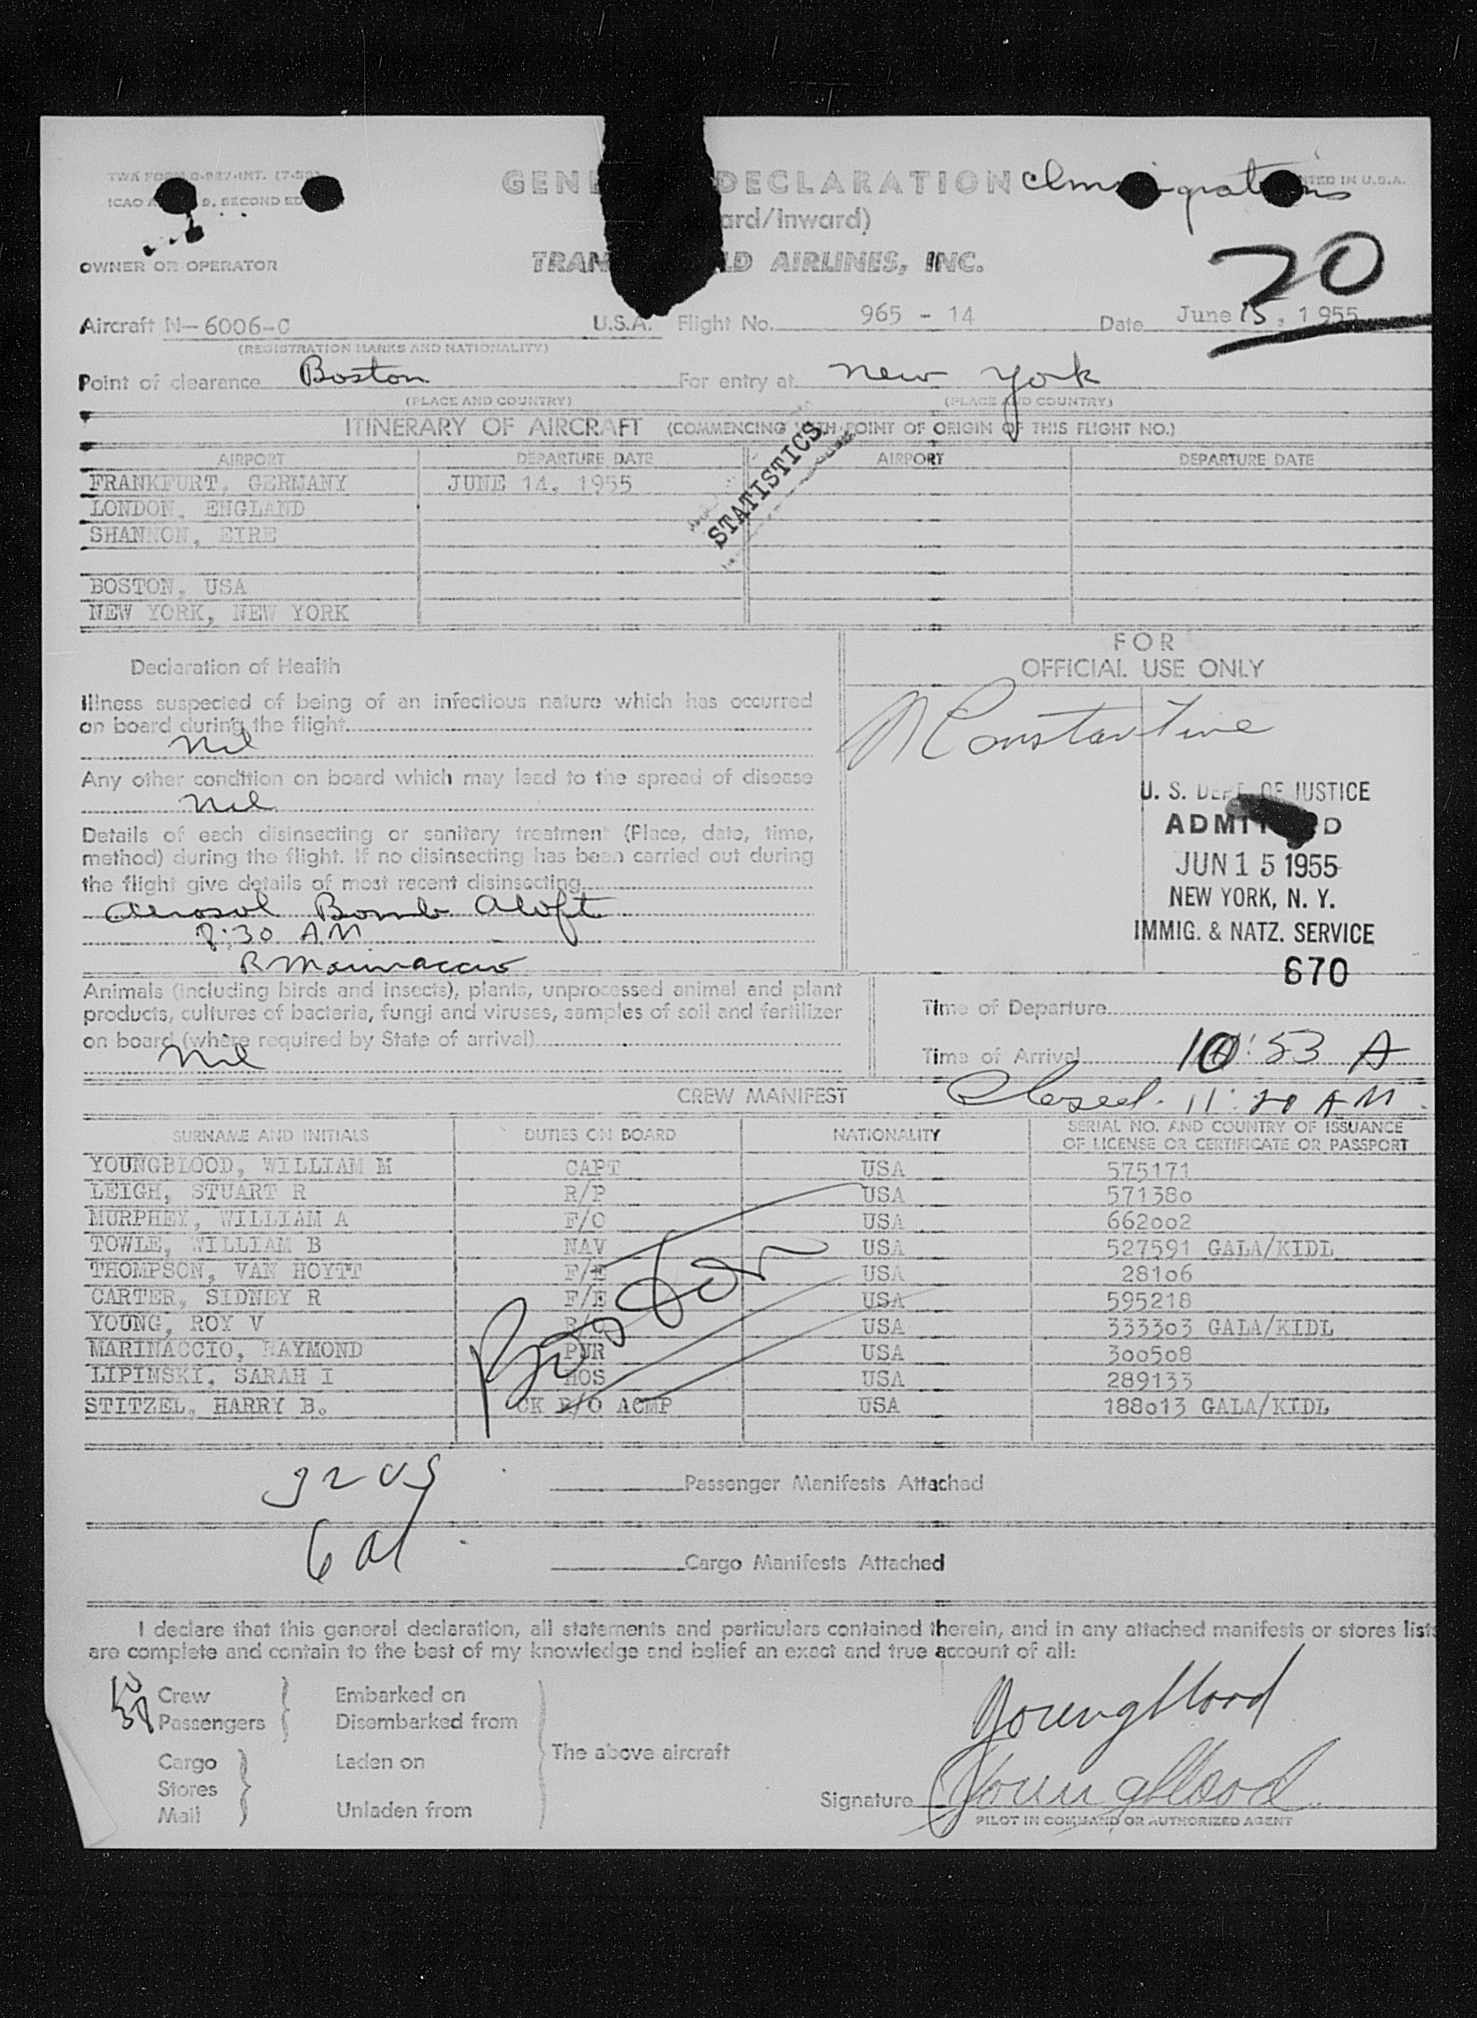 TWA FORM
ICAO SECOND ED
GENE DECLARATION Immigrations NTED IN U.S.A.
ard/Inward)
20
OWNER OR OPERATOR
TRAN LD AIRLINES, INC.
Aircraft N-6006-C U.S.A. Flight No. 965 - 14 Date June 15, 1955
(REGISTRATION MARKS AND NATIONALITY)
Point of clearance Boston For entry at New York
(PLACE AND COUNTRY) (PLACE AND COUNTRY)
ITINERARY OF AIRCRAFT (COMMENCING WITH POINT OF ORIGIN OF THIS FLIGHT NO.)
STATISTICS
AIRPORT DEPARTURE DATE AIRPORT DEPARTURE DATE
FRANKFURT, GERMANY JUNE 14, 1955
LONDON, ENGLAND
SHANNON, EIRE
BOSTON, USA
NEW YORK, NEW YORK
Declaration of Health
Illness suspected of being of an infectious nature which has occurred
on board during the flight
Nil
Any other condition on board which may lead to the spread of disease
Nil
Details of each disinsecting or sanitary treatment (Place, date, time,
method) during the flight. If no disinsecting has been carried out during
the flight give details of most recent disinsecting
Aerosol Bomb Aloft
8:30 AM
R Marinaccio
Animals (including birds and insects), plants, unprocessed animal and plant
products, cultures of bacteria, fungi and viruses, samples of soil and fertilizer
on board (where required by State of arrival)
Nil
FOR
OFFICIAL USE ONLY
N Constantine
U. S. DEPT. OF JUSTICE
ADMITTED
JUN 15 1955
NEW YORK, N. Y.
IMMIG. & NATZ. SERVICE
670
Time of Departure
Time of Arrival 10:53 A
Closed. 11:20 AM.
CREW MANIFEST
SURNAME AND INITIALS DUTIES ON BOARD NATIONALITY SERIAL NO. AND COUNTRY OF ISSUANCE
OF LICENSE OR CERTIFICATE OR PASSPORT
YOUNGBLOOD, WILLIAM M CAPT USA 575171
LEIGH, STUART R R/P USA 571380
MURPHEY, WILLIAM A F/O USA 662002
TOWLE, WILLIAM B NAV USA 527591 GALA/KIDL
THOMPSON, VAN HOYTT F/E USA 28106
CARTER, SIDNEY R F/E USA 595218
YOUNG, ROY V R/O USA 333303 GALA/KIDL
MARINACCIO, RAYMOND PUR USA 300508
LIPINSKI, SARAH I HOS USA 289133
STITZEL, HARRY B. CK R/O ACMP USA 188013 GALA/KIDL
Boston
32 US
6 al
Passenger Manifests Attached
Cargo Manifests Attached
I declare that this general declaration, all statements and particulars contained therein, and in any attached manifests or stores lists
are complete and contain to the best of my knowledge and belief an exact and true account of all:
Crew Embarked on
Passengers Disembarked from
Cargo Laden on The above aircraft
Stores
Mail Unladen from
Youngblood
Signature Youngblood
PILOT IN COMMAND OR AUTHORIZED AGENT